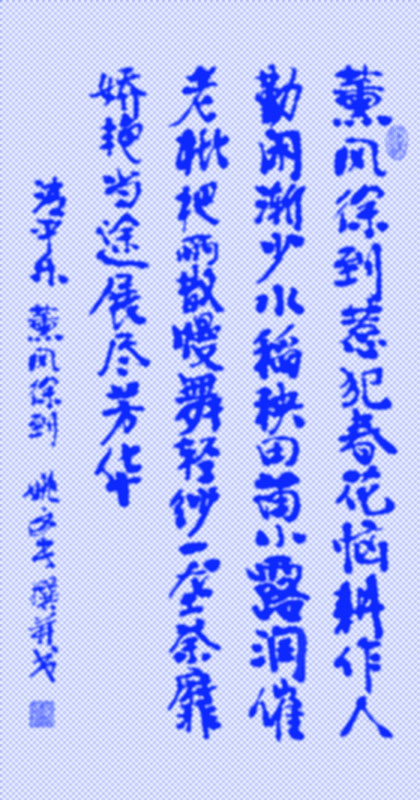 薰风徐到惹犯春花恼耕作人
勤闲渐少水稻秧田苗小露润催
老枇杷雨散慢舞轻纱一座荼靡
娇艳当途展尽芳华
清平乐 薰风徐到 姚文 撰并书